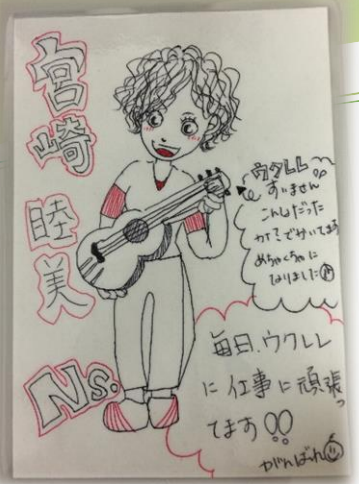 宮崎
睦美
Ns.
ウクレレ
すいません
こんなだった
めちゃくちゃに
なりました
毎日、ウクレレ
に仕事に頑張っ
てます!!
がんばれ